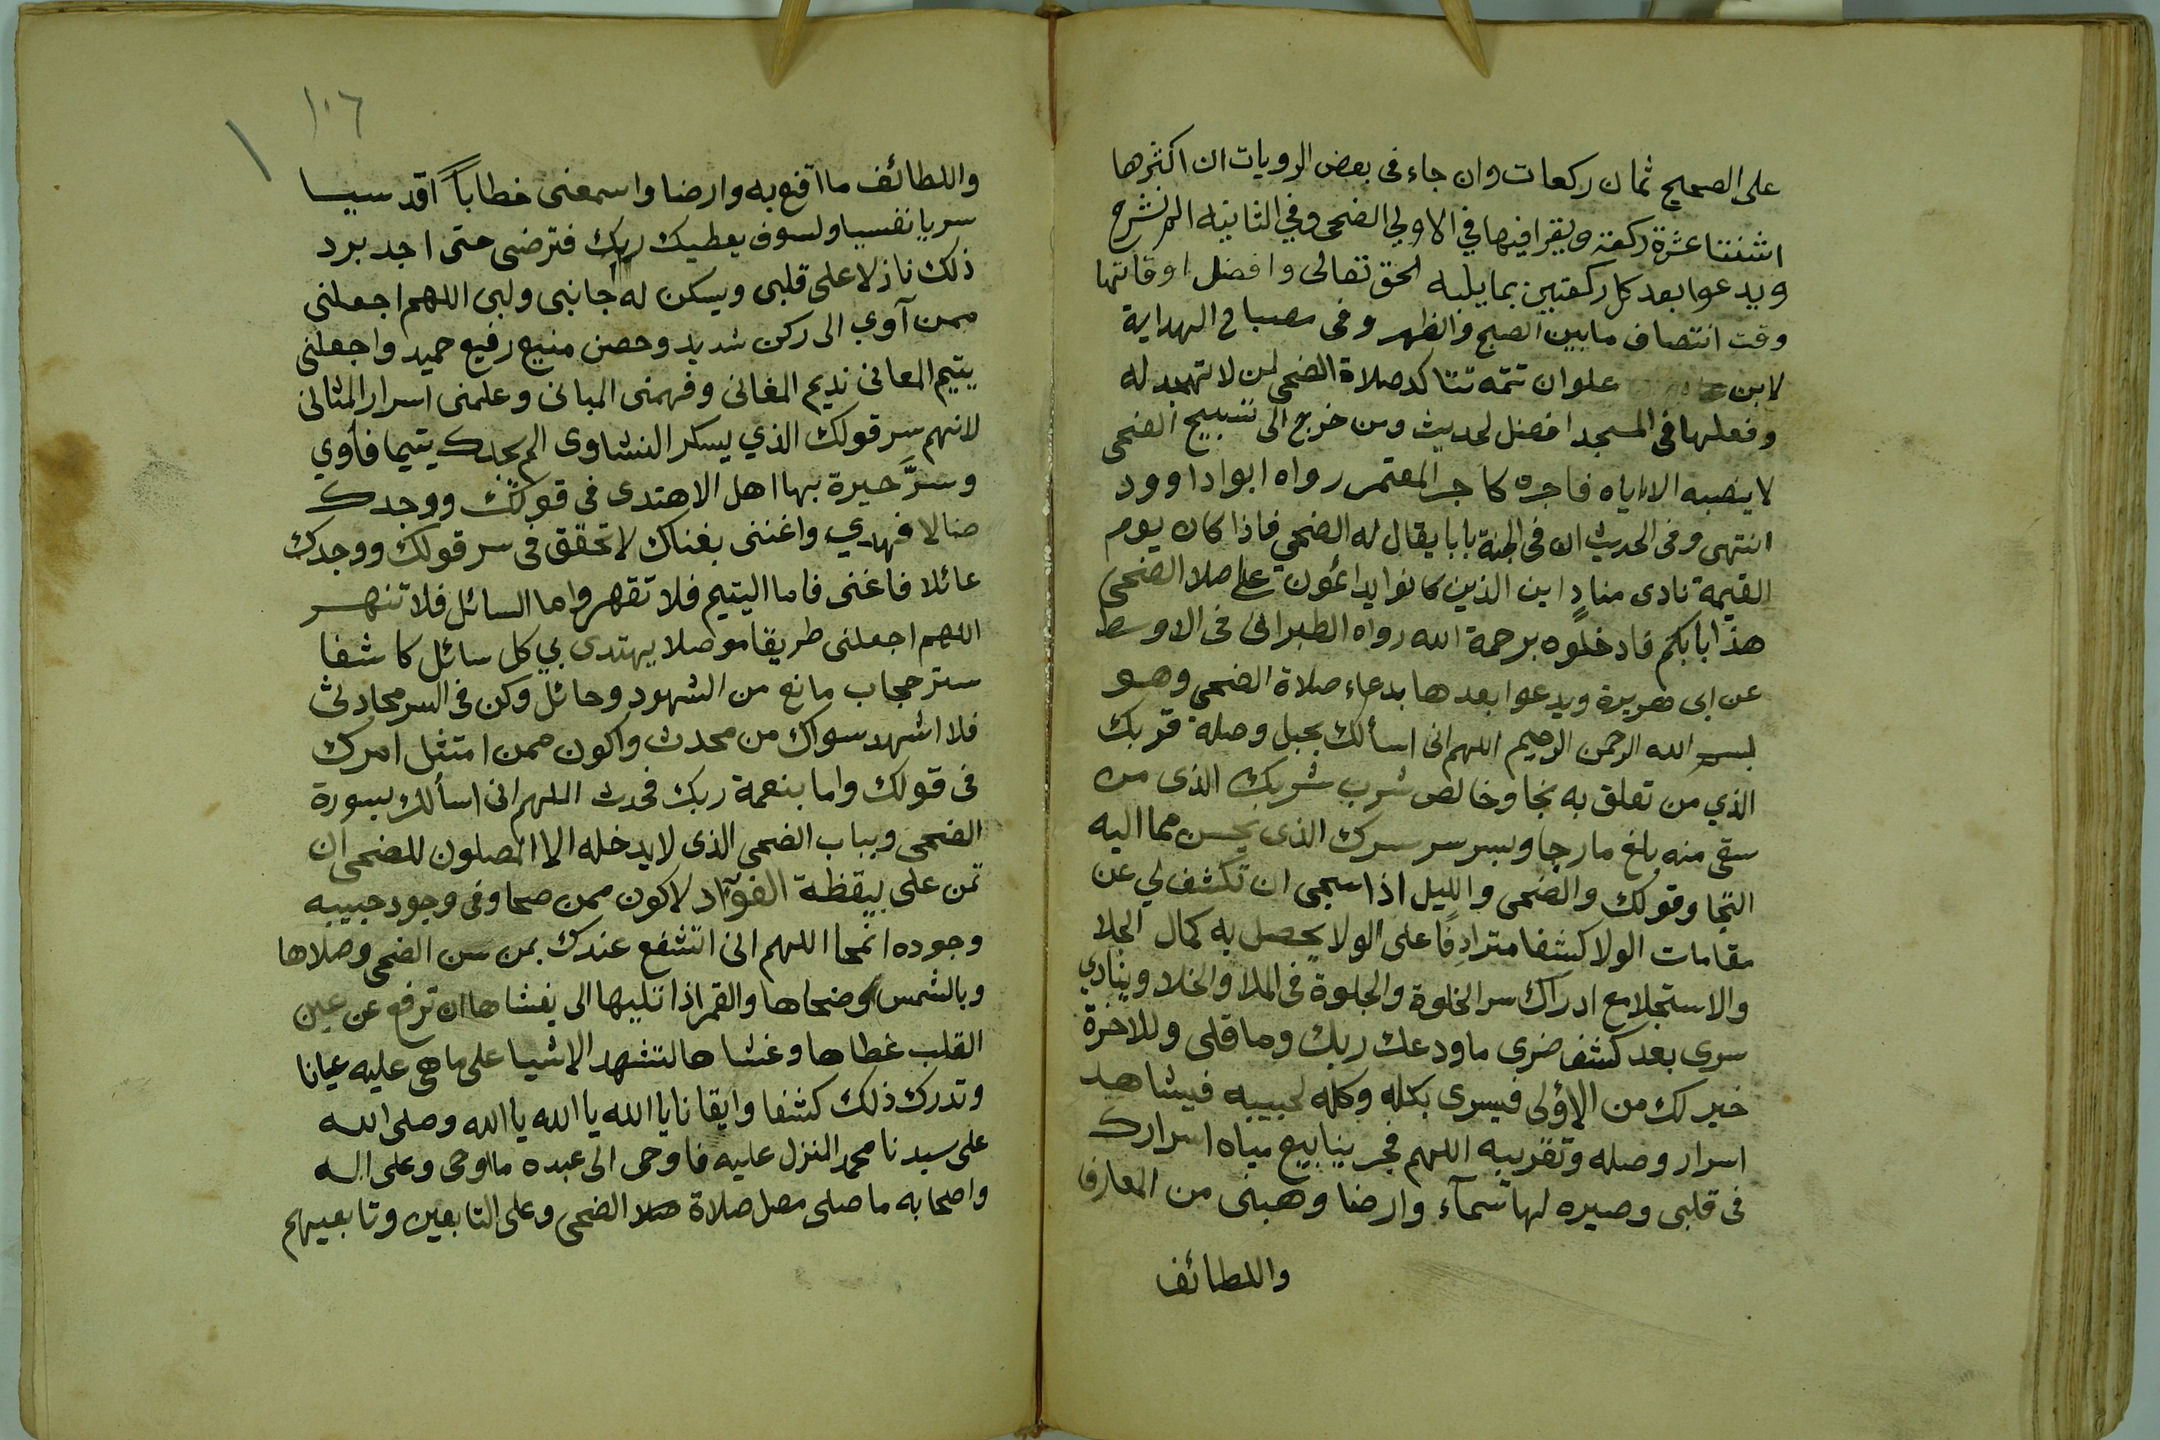 على الصحيح ثمان ركعات وان جاء فى بعض الرويات ان اكثرها
اثنتا عشرة ركعة ويقرا فيها في الاولي الضحى وفي الثانيه الم نشرح
ويدعوا بعد كل ركعتين بما يليه الحق تعالى وافضل اوقاتها
وقت انتصاف مابين الصبح والظهر وفى مصباح الهداية
لابن علوان تتمه تتاكد صلاة الضحى لمن لا تهجد له
وفعلها فى المسجد افضل لحديث ومن خرج الى تسبيح الضحى
لا ينصبه الا اياه فاجره كاجر المعتمر رواه ابوا داوود
انتهى وفى الحديث ان فى الجنة بابا يقال له الضحى فاذا كان يوم
القيمة نادى منادٍ اين الذين كانوا يدائمون على صلاة الضحى
هذا بابكم فادخلوه برحمة الله رواه الطبرانى فى الاوسط
عن ابى هريرة ويدعوا بعدها بدعاء صلاة الضحى وهو
بسم الله الرحمن الرحيم اللهم انى اسألك بحبل وصلة قربك
الذي من تعلق به نجا وخالص شرب شربك الذى من
سقى منه بلغ ما رجا وبسر سر سرك الذى يحسن مما اليه
التجا وقولك والضحى والليل اذا سجى ان تكشف لي عن
مقامات الولا كشفا مترادفًا على الولا يحصل به كمال الجلا
والاستجلا مع ادراك سر الخلوة والجلوة فى الملا والخلا وينادي
سرى بعد كشف ضرى ما ودعك ربك وما قلى وللاخرة
خير لك من الاولى فيسرى بكله وكله لحبيبه فيشاهد
اسرار وصله وتقريبه اللهم فجر ينابيع مياه اسرارك
فى قلبى وصيره لها سمآء وارضا وهبنى من المعارف
واللطائف
١٠٦
واللطائف ما اقنع به وارضا واسمعنى خطاباً اقدسيا
سريا نفسيا ولسوف يعطيك ربك فترضى حتى اجد برد
ذلك نازلا على قلبى ويسكن له جانبى ولبى اللهم اجعلنى
ممن آوي الى ركن شديد وحصن منيع رفيع حميد واجعلنى
يتيم المعانى نديم المغانى وفهمنى المبانى وعلمنى اسرار المثانى
لافهم سر قولك الذي يسكر النشاوى الم يجدك يتيما فأوي
وسرَّ حيرة بها اهل الاهتدى فى قولك ووجدك
ضالا فهدي واغننى بغناك لاتحقق فى سر قولك ووجدك
عائلا فاغنى فاما اليتيم فلا تقهر واما السائل فلا تنهر
اللهم اجعلنى طريقا موصلا يهتدى بي كل سائل كاشفا
ستر حجاب مانع من الشهود وحائل وكن فى السر محادثى
فلا اشهد سواك من محدث واكون ممن امتثل امرك
فى قولك واما بنعمة ربك فحدث اللهم انى اسألك بسورة
الضحى وبباب الضحى الذى لا يدخله الا المصلون للضحى ان
تمن على بيقظة الفؤاد لاكون ممن صحا وفى وجود حبيبه
وجوده انمحا اللهم انى اتشفع عندك بمن سن الضحى وصلاها
وبالشمس وضحاها والقمر اذا تليها الى يغشاها ان ترفع عن عين
القلب غطاها وغشاها لتشهد الاشيا على ما هى عليه عيانا
وتدرك ذلك كشفا وايقانا يا الله يا الله يا الله وصلى الله
على سيدنا محمد المنزل عليه فاوحى الى عبده ما اوحى وعلى اله
واصحابه ما صلى مصل صلاة الضحى وعلى التابعين وتابعيهم